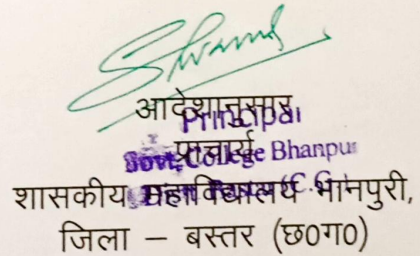 आदेशानुसार
Principal
प्राचार्य
Govt. College Bhanpur
शासकीय महाविद्यालय भानपुरी,
जिला – बस्तर (छ०ग०)